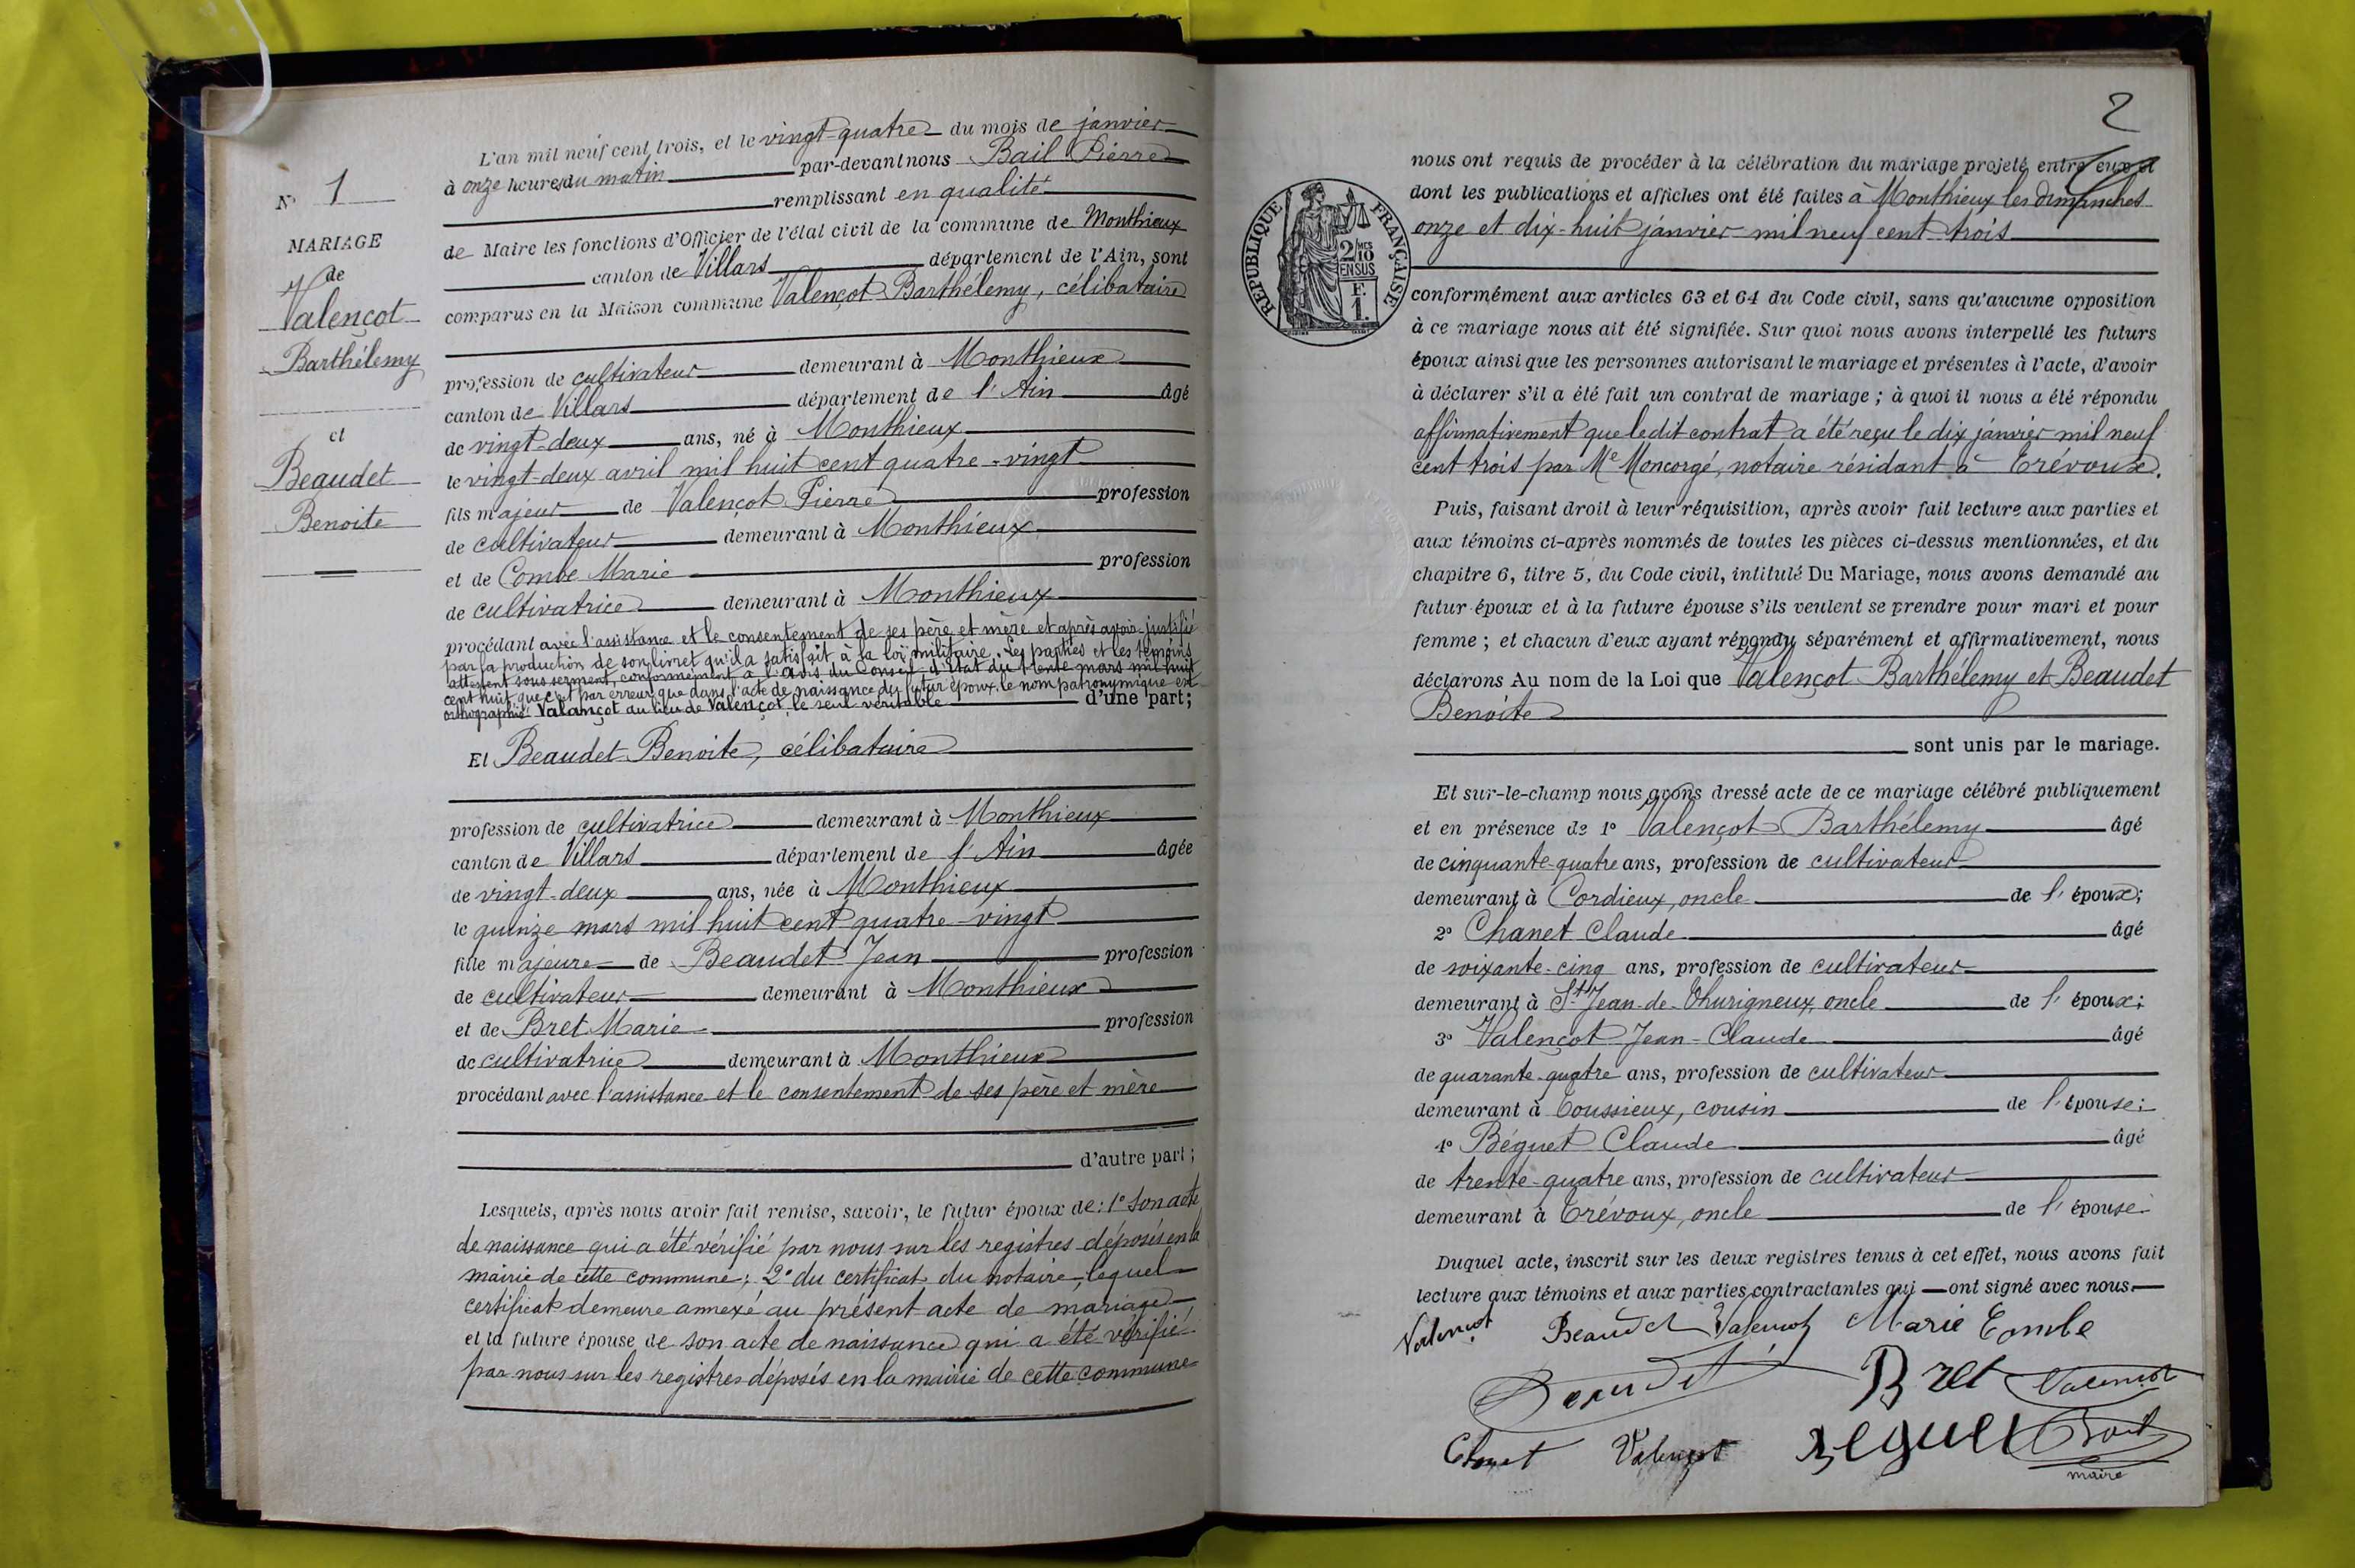 N° 1
MARIAGE
de
Valençot
Barthélemy
et
Beaudet
Benoite
L'an mil neuf cent trois, et le vingt-quatre du mois de janvier
à onze heures du matin par-devant nous Bail Pierre
remplissant en qualité
de Maire les fonctions d'Officier de l'état civil de la commune de Monthieux
canton de Villars département de l'Ain, sont
comparus en la Maison commune Valençot Barthélemy, célibataire
profession de cultivateur demeurant à Monthieux
canton de Villars département de l'Ain âgé
de vingt-deux ans, né à Monthieux
le vingt-deux avril mil huit cent quatre-vingt
fils majeur de Valençot Pierre profession
de cultivateur demeurant à Monthieux
et de Combe Marie profession
de cultivatrice demeurant à Monthieux
procédant avec l'assistance et le consentement de ses père et mère et après avoir justifié
par la production de son livret qu'il a satisfait à la loi militaire. Les parties et les témoins
attestent sous serment, conformément à l'avis du Conseil d'Etat du trente mars mil huit
cent huit, que c'est par erreur que dans l'acte de naissance du futur époux le nom patronymique est
orthographié Valançot au lieu de Valençot, le seul véritable d'une part;
Et Beaudet Benoite, célibataire
profession de cultivatrice demeurant à Monthieux
canton de Villars département de l'Ain âgée
de vingt-deux ans, née à Monthieux
le quinze mars mil huit cent quatre-vingt
fille majeure de Beaudet Jean profession
de cultivateur demeurant à Monthieux
et de Bret Marie profession
de cultivatrice demeurant à Monthieux
procédant avec l'assistance et le consentement de ses père et mère
d'autre part;
Lesquels, après nous avoir fait remise, savoir, le futur époux de: 1° Son acte
de naissance qui a été vérifié par nous sur les registres déposés en la
mairie de cette commune; 2° du certificat du notaire, lequel
certificat demeure annexé au présent acte de mariage
et la future épouse de son acte de naissance qui a été vérifié
par nous sur les registres déposés en la mairie de cette commune
2
nous ont requis de procéder à la célébration du mariage projeté entre eux et
dont les publications et affiches ont été faites à Monthieux les dimanches
onze et dix-huit janvier mil neuf cent trois
RÉPUBLIQUE FRANÇAISE
2/10 MES
EN SUS
F.
1.
conformément aux articles 63 et 64 du Code civil, sans qu'aucune opposition
à ce mariage nous ait été signifiée. Sur quoi nous avons interpellé les futurs
époux ainsi que les personnes autorisant le mariage et présentes à l'acte, d'avoir
à déclarer s'il a été fait un contrat de mariage; à quoi il nous a été répondu
affirmativement que ledit contrat a été reçu le dix janvier mil neuf
cent trois par Me Moncorgé, notaire résidant à Trévoux.
Puis, faisant droit à leur réquisition, après avoir fait lecture aux parties et
aux témoins ci-après nommés de toutes les pièces ci-dessus mentionnées, et du
chapitre 6, titre 5, du Code civil, intitulé Du Mariage, nous avons demandé au
futur époux et à la future épouse s'ils veulent se prendre pour mari et pour
femme; et chacun d'eux ayant répondu séparément et affirmativement, nous
déclarons Au nom de la Loi que Valençot Barthélemy et Beaudet
Benoite
sont unis par le mariage.
Et sur-le-champ nous avons dressé acte de ce mariage célébré publiquement
et en présence de 1° Valençot Barthélemy âgé
de cinquante-quatre ans, profession de cultivateur
demeurant à Cordieux, oncle de l'époux;
2° Chanet Claude âgé
de soixante-cinq ans, profession de cultivateur
demeurant à St Jean-de-Thurigneux, oncle de l'époux;
3° Valençot Jean-Claude âgé
de quarante-quatre ans, profession de cultivateur
demeurant à Toussieux, cousin de l'épouse;
4° Béguet Claude âgé
de trente-quatre ans, profession de cultivateur
demeurant à Trévoux, oncle de l'épouse.
Duquel acte, inscrit sur les deux registres tenus à cet effet, nous avons fait
lecture aux témoins et aux parties contractantes qui ont signé avec nous.
Valençot Beaudet Valençot Marie Combe
Beaudet Bret Valençot
Chanet Valençot Béguet Bail
maire